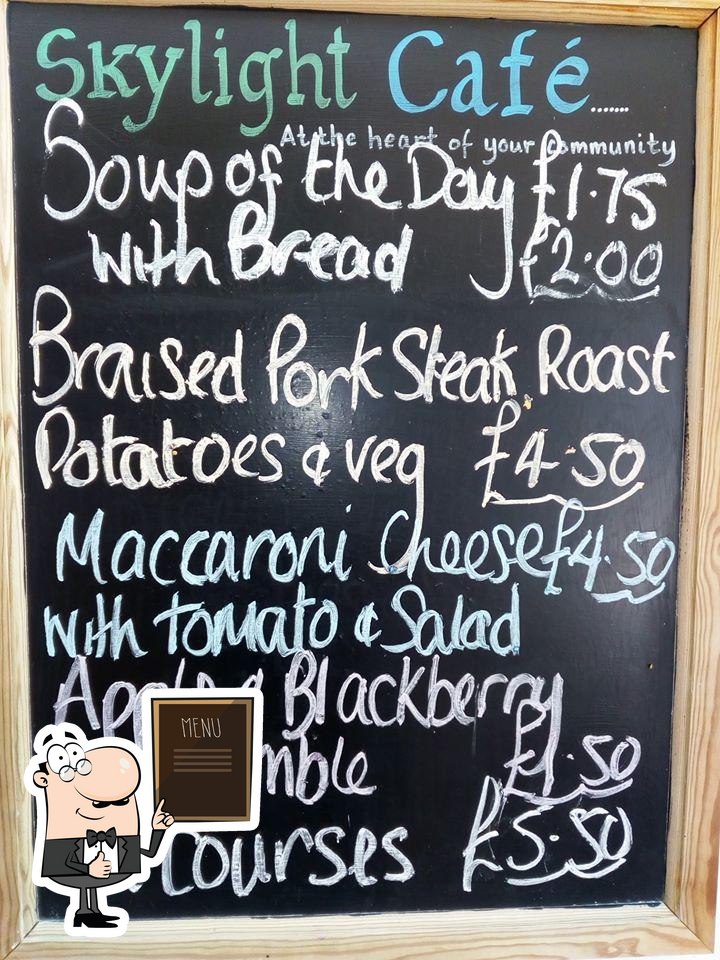 Skylight Café.......
At the heart of your community
Soup of the Day £1.75
with Bread £2.00
Braised Pork Steak Roast
Potatoes & veg £4.50
Maccaroni Cheese £4.50
with Tomato & Salad
Apple & Blackberry
MENU
mble £1.50
courses £5.50